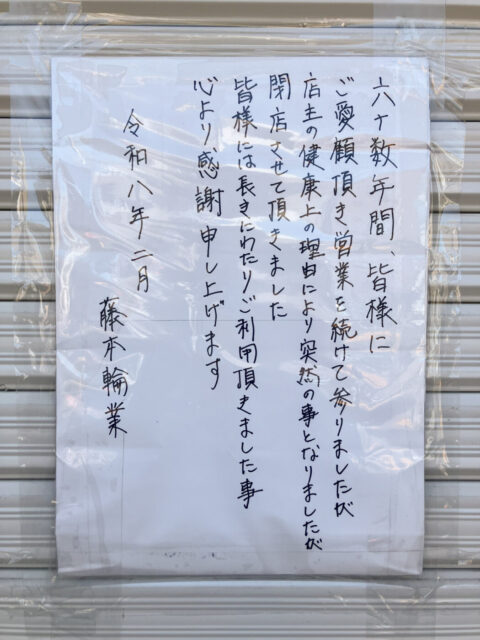 六十数年間、皆様に
ご愛顧頂き営業を続けて参りましたが
店主の健康上の理由により突然の事となりましたが
閉店させて頂きました
皆様には長きにわたりご利用頂きました事
心より感謝申し上げます
令和八年二月
藤本輪業